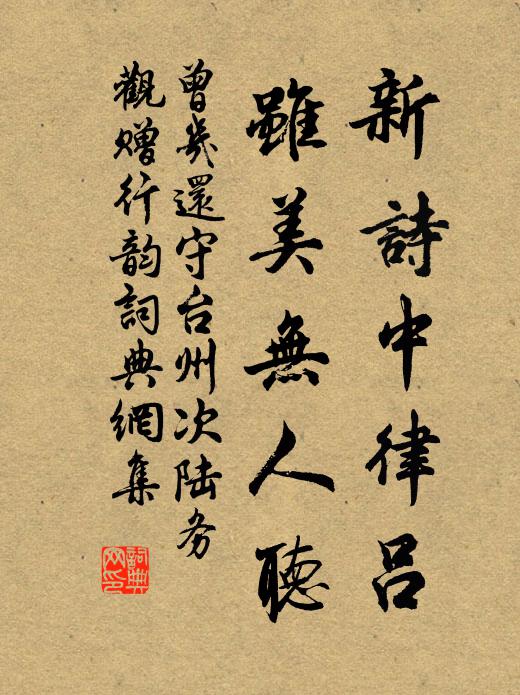 新詩中律呂
雖美無人聽
曾幾還守台州次陆务
觀赠行韵詞典網集
詞典网印